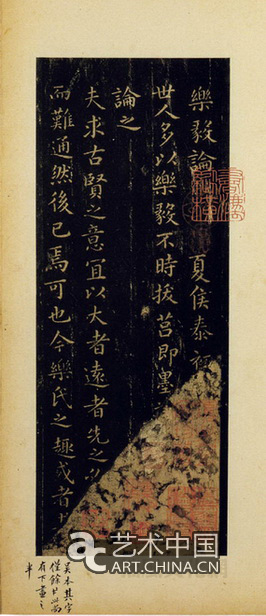 樂毅論 夏侯泰
世人多以樂毅不時拔莒即墨
論之
夫求古賢之意宜以大者遠者先之必
而難通然後已焉可也今樂氏之趣或者
吴本其字
僅餘廿此尚
有下畫之
半
艺术中国